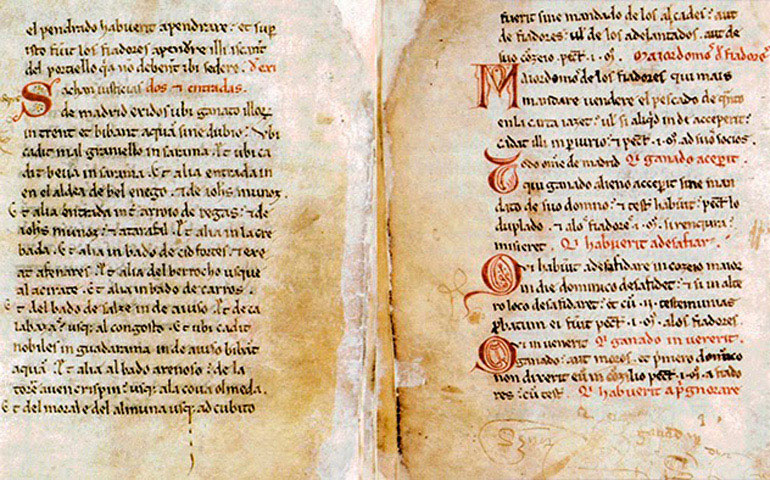 el pendrado habuerit apendrare ⁊ et sup
isto fuĩt los fiadores apendre illi iscant
del portiello q̃a nõ debent ibi sedere. D̃ exi
Sachan iusticias dos ⁊ entradas.
de madrid exidos ubi ganato illoꝝ
intrent et bibant aquã sine dubio. Ubi
cadit mal gramello in sarama. ⁊ ubi ca
dit bevia in sarama. Et alia entrada in
en el aldea de bel enego. ⁊ de iohis munoz
Et alia entrada in arroio de vegas. ⁊ de
iohis munoz. ⁊ alia in la cre
bada. Et alia in bado de cidfortes ⁊ exe
at afenares. Et alia del berrocho usque
al acirate. Et alia in bado de carros.
Et del bado de salze in de aiuso. Et de ca
labaza usq; al congosto. Et ubi cadit
nobiles in guadarama in de aiuso bibãt
aquã. Et alia al bado arenoso. ⁊ de la
torẽ aven crispin usq; ala cova olmeda.
Et del moral e del almunia usq; ad cubito
fuerit sine mandado de los alcades: aut
de fiadores: ul̃ de los adelantados. aut de
suo cõzeio. pect̃. i. m̃. Maiordomo d̃ fiadores
Maiordomo de los fiadores qui mais
mandare vendere el pescado de q̃nto
en la carta iazet: ul̃ si aliq̃d in de acceperit:
cadat illi in piurio: ⁊ pect̃. i. m̃. ad suos socios.
Todo om̃e de madrid Q̃ ganado acepit.
qui ganado alieno acceperit sine man
dato de suo domino: ⁊ test̃ habuĩt: pect̃ lo
duplado. ⁊ alos fiadores. i. m̃. si rencura
misieret. Q̃ habuerit adesafiar.
Qui habuĩt adesafidare in cõzeio maior
in die dominico desafidet: ⁊ si in alte
ro loco desafidaret: ⁊ cũ. ii. testimunias
pbatum ei fuerit pect̃. i. m̃. alos fiadores.
Qui in venerit Q̃ ganado in venerit.
ganado: aut moros. et primero domĩco
non dixerit eũ in cõzilio pect̃. i. m̃. a fiado
res: cũ test̃. Q̃ habuerit apignorare
ganado